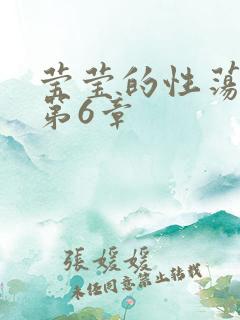 莹莹的性荡
第6章
張媛媛
未经同意禁止转载